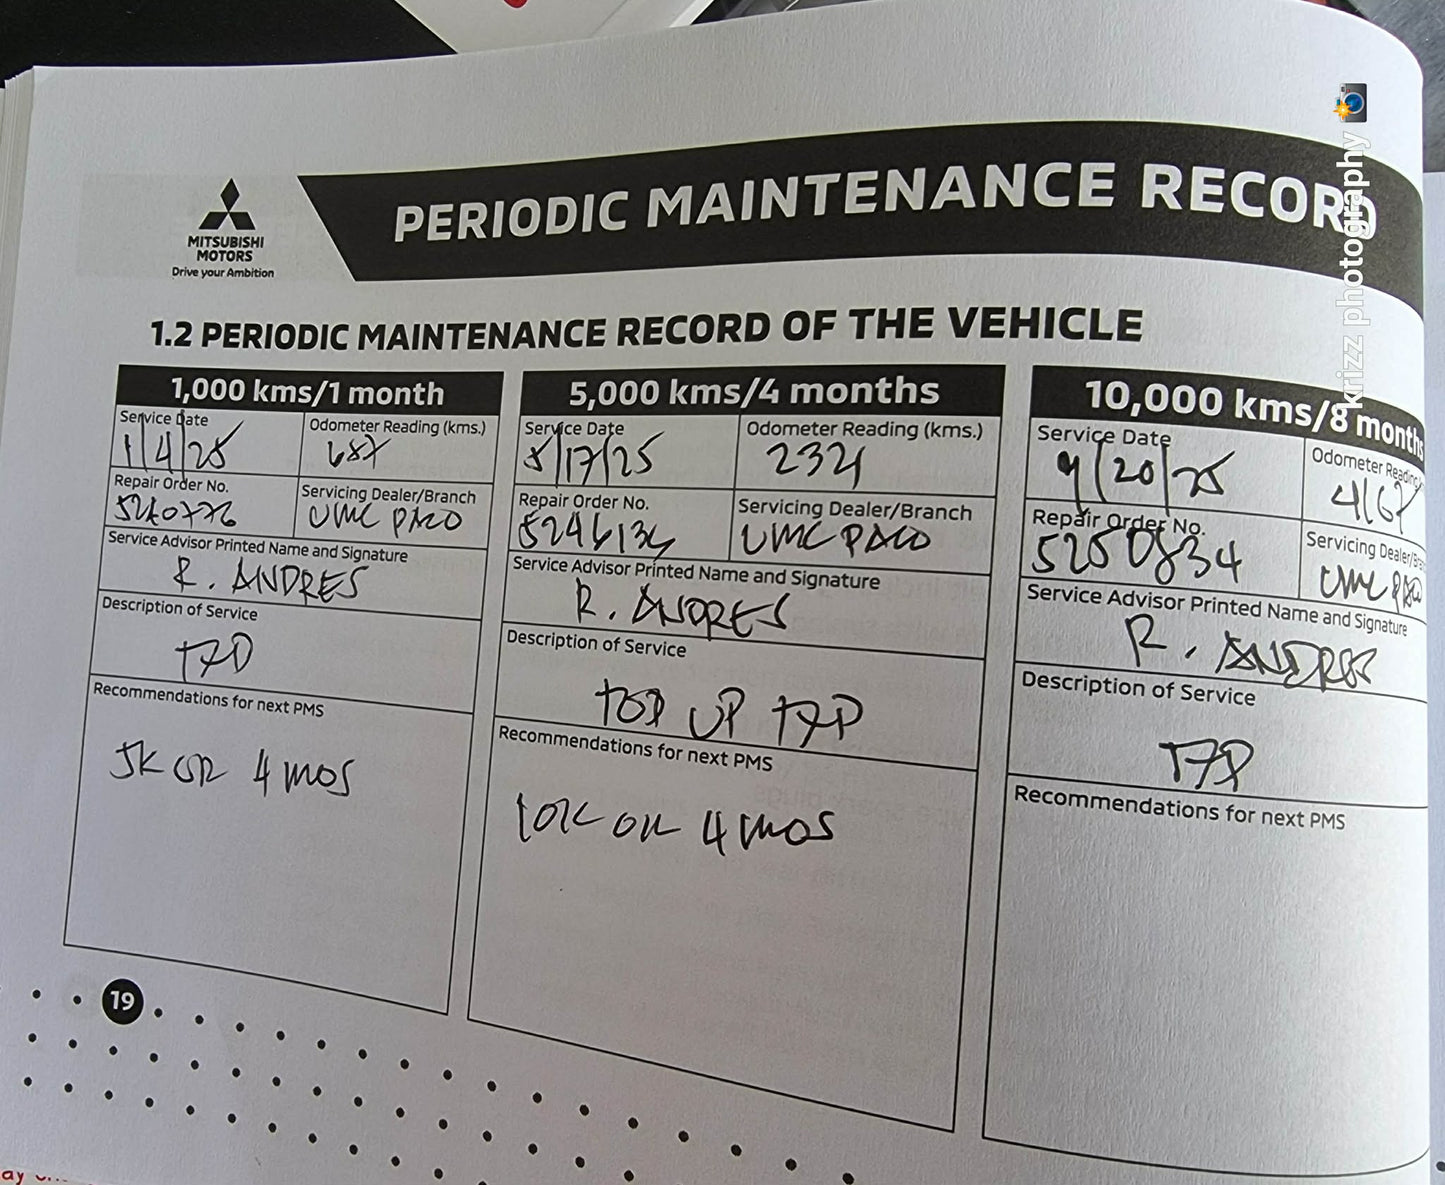 MITSUBISHI
MOTORS
Drive your Ambition
PERIODIC MAINTENANCE RECORD
krizz photography
1.2 PERIODIC MAINTENANCE RECORD OF THE VEHICLE
1,000 kms/1 month
Service Date
1/4/25
Odometer Reading (kms.)
687
Repair Order No.
Servicing Dealer/Branch
UMC PACO
Service Advisor Printed Name and Signature
R. ANDRES
Description of Service
Recommendations for next PMS
5K OR 4 MOS
5,000 kms/4 months
Service Date
5/17/25
Odometer Reading (kms.)
2321
Repair Order No.
Servicing Dealer/Branch
UMC PACO
Service Advisor Printed Name and Signature
R. ANDRES
Description of Service
TOP UP
Recommendations for next PMS
10K OR 4 MOS
10,000 kms/8 months
Service Date
9/20/25
Odometer Reading
4167
Repair Order No.
5250834
Servicing Dealer/
UMC PACO
Service Advisor Printed Name and Signature
R. ANDRES
Description of Service
Recommendations for next PMS
19